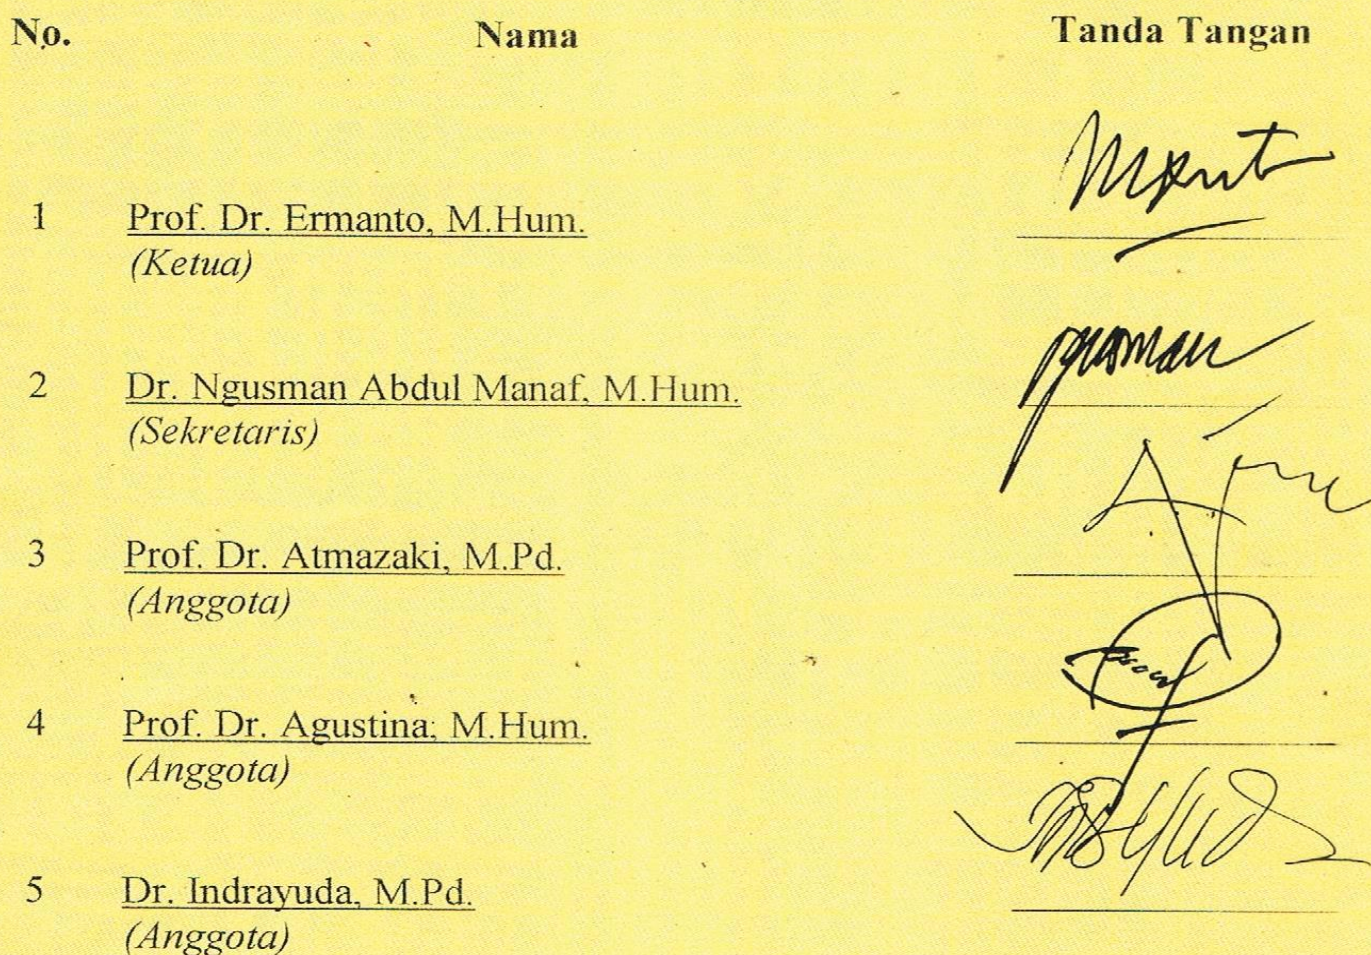 No. Nama Tanda Tangan
1 Prof. Dr. Ermanto, M.Hum.
(Ketua)
2 Dr. Ngusman Abdul Manaf, M.Hum.
(Sekretaris)
3 Prof. Dr. Atmazaki, M.Pd.
(Anggota)
4 Prof. Dr. Agustina, M.Hum.
(Anggota)
5 Dr. Indrayuda, M.Pd.
(Anggota)